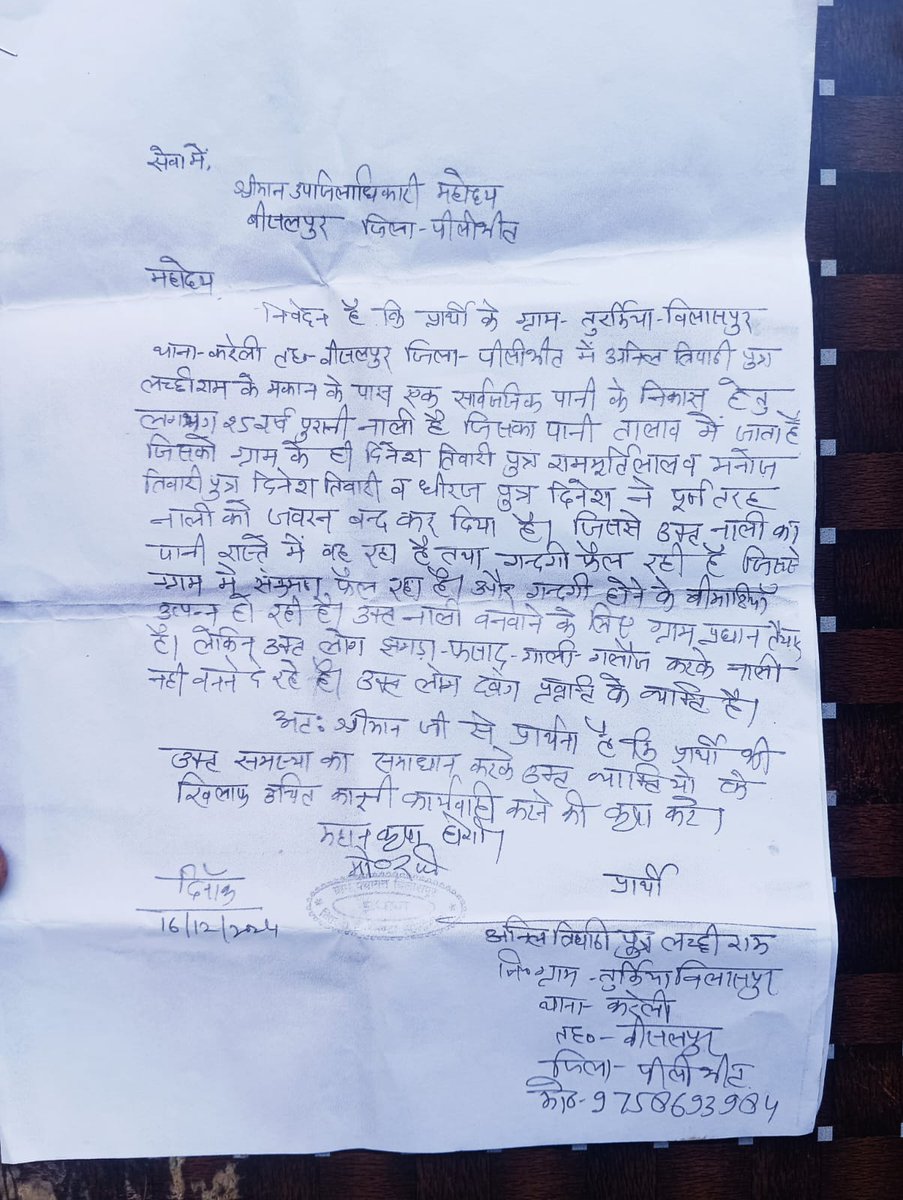 सेवा में,
श्रीमान उपजिलाधिकारी महोदय
बीसलपुर जिला-पीलीभीत
महोदय
निवेदन है कि प्रार्थी के ग्राम- तुर्किया-विलासपुर
थाना-करेली तह०-बीसलपुर जिला-पीलीभीत में अनिल त्रिपाठी पुत्र
लच्छीराम के मकान के पास एक सार्वजनिक पानी के निकास हेतु
लगभग २५ वर्ष पुरानी नाली है जिसका पानी तालाव में जाता है
जिसको ग्राम के ही दिनेश तिवारी पुत्र राममूर्तिलाल व मनोज
तिवारी पुत्र दिनेश तिवारी व धीरज पुत्र दिनेश ने पूर्ण तरह
नाली को जवरन बन्द कर दिया है। जिससे उक्त नाली का
पानी रास्ते में वह रहा है तथा गन्दगी फैल रही है जिससे
ग्राम में संक्रमण फैल रहा है। और गन्दगी होने के बीमारियाँ
उत्पन्न हो रही है। उक्त नाली वनवाने के लिए ग्राम प्रधान तैयार
है। लेकिन उक्त लोग झगड़ा-फसाद-गाली-गलौज करके नाली
नही वनने दे रहे है। उक्त लोग दवंग प्रवृत्ति के व्यक्ति है।
अतः श्रीमान जी से प्रार्थना है कि प्रार्थी की
उक्त समस्या का समाधान करके उक्त व्यक्तियो के
खिलाफ उचित कानूनी कार्यवाही करने की कृपा करे।
महान कृपा होगी।
दिनाँक
प्रार्थी
16/12/2024
अनिल त्रिपाठी पुत्र लच्छी राम
नि०ग्राम -तुर्किया विलासपुर
थाना- करेली
तह०-बीसलपुर
जिला- पीलीभीत
मो०-9758693984